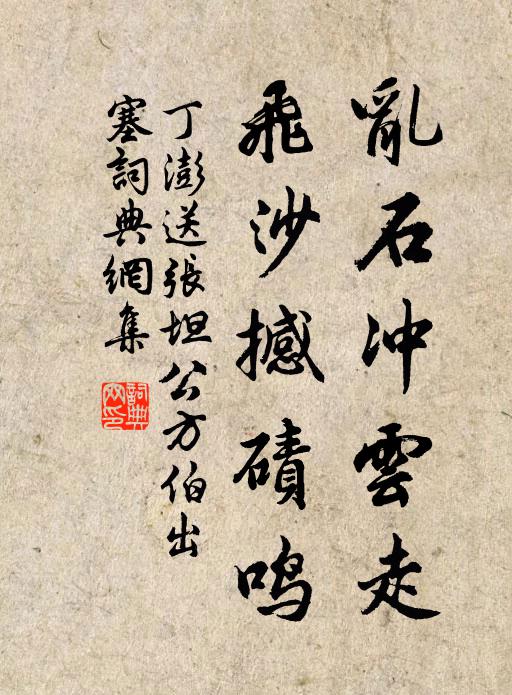 亂石冲雲走
飛沙撼磧鸣
丁澎送張坦公方伯出
塞詞典網集
詞典
网印